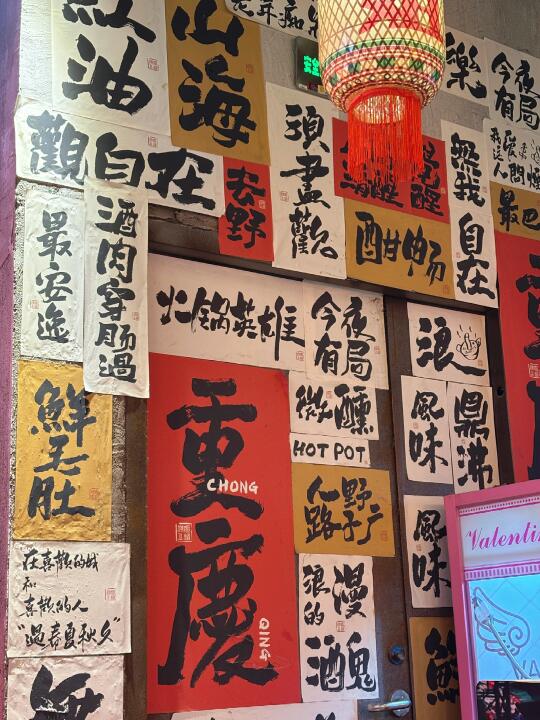 紅油
山海
安全
樂
今夜
有局
觀自在
去野
須盡歡
無我
自在
酣暢
最安逸
酒肉穿腸過
火锅英雄
今夜
有局
浪
重慶
CHONG
QING
微醺
HOT POT
風味
鼎沸
鮮毛肚
野子
人路广
風味
在喜歡的城
和
喜歡的人
"過春夏秋冬"
浪漫
的酒鬼
Valentin